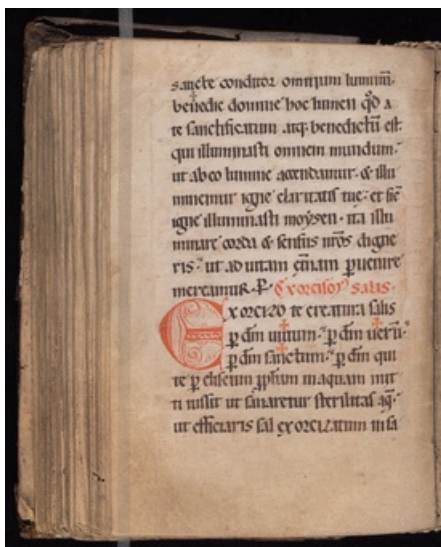 sancte conditor omnium luminū.
benedic domine hoc lumen qđ a
te sanctificatum atq; benedictū est.
qui illuminasti omnem mundum.
ut ab eo lumine accendamur. & illu
minemur igne claritatis tue. et sic̄
igne illuminasti moysen. ita illu
minare corda & sensus nr̄os digne
ris. ut ad uitam et̄nam ꝑuenire
mereamur. P. Exorcism̄ salis.
Exorcizo te creatura salis
ꝑ dm̄ uiuum. ꝑ dm̄ uerū.
ꝑ dm̄ sanctum. ꝑ dm̄ qui
te ꝑ eliseum ꝓph̄am in aquam mit
ti iussit ut sanaretur sterilitas aq̄.
ut efficiaris sal exorcizatum in sa